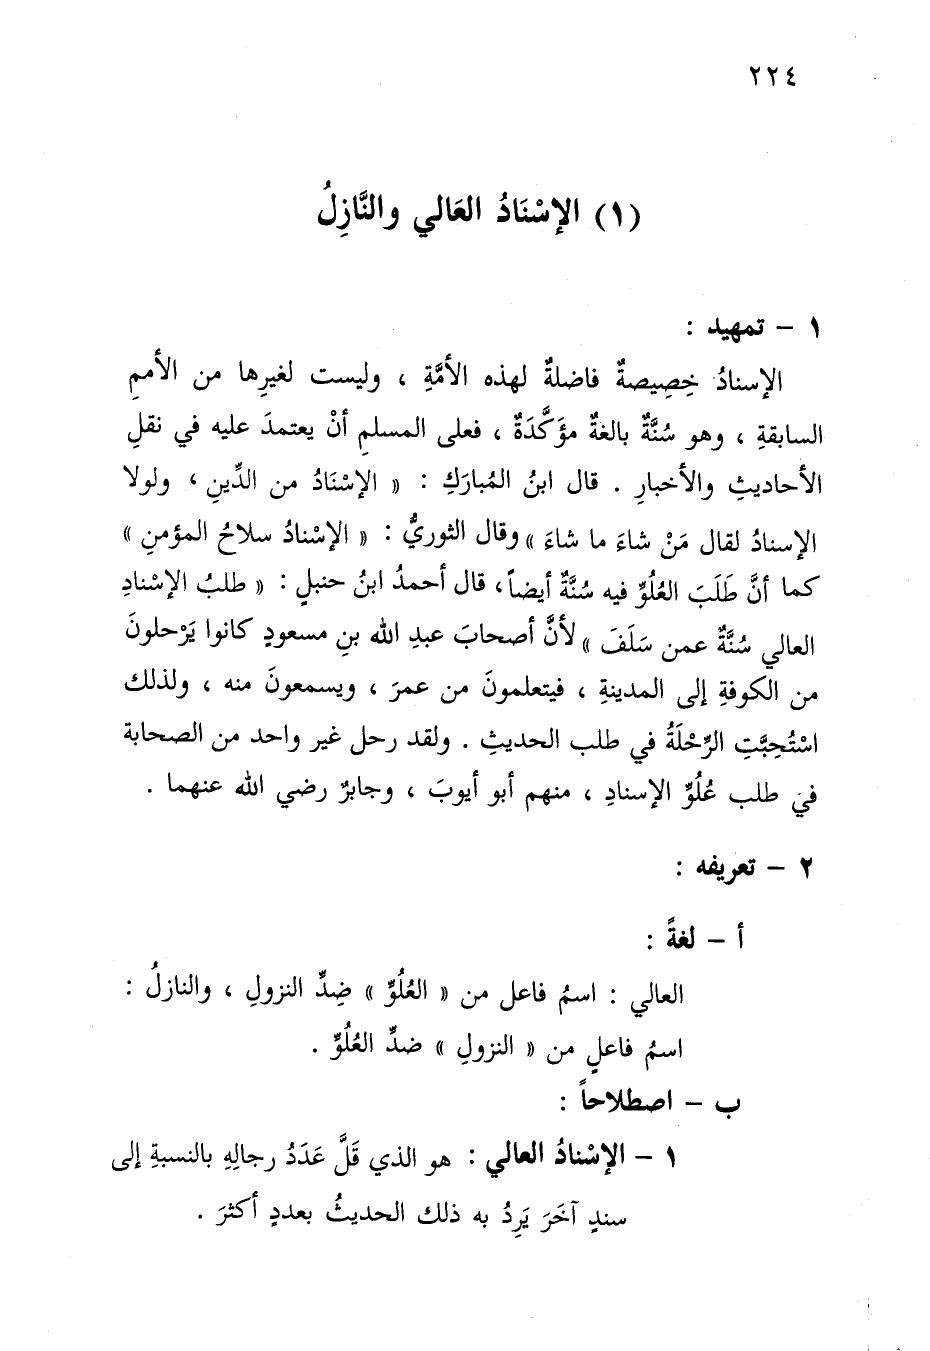 ٢٢٤
(١) الإسْنَادُ العَالي والنَّازِلُ
١ – تمهيد :
الإسنادُ خِصِيصةٌ فاضلةٌ لهذه الأمَّةِ ، وليست لغيرِها من الأممِ
السابقةِ ، وهو سُنَّةٌ بالغةٌ مؤَكَّدَةٌ ، فعلى المسلمِ أنْ يعتمدَ عليه في نقلِ
الأحاديثِ والأخبارِ . قال ابنُ المُبارَكِ : « الإسْنَادُ من الدِّينِ ، ولولا
الإسنادُ لقال مَنْ شاءَ ما شاءَ » وقال الثوريُّ : « الإسْنادُ سلاحُ المؤمنِ »
كما أنَّ طَلَبَ العُلُوِّ فيه سُنَّةٌ أيضاً ، قال أحمدُ ابنُ حنبلٍ : « طلبُ الإسْنادِ
العالي سُنَّةٌ عمن سَلَفَ » لأنَّ أصحابَ عبدِ الله بنِ مسعودٍ كانوا يَرْحلونَ
من الكوفةِ إلى المدينةِ ، فيتعلمونَ من عمرَ ، ويسمعونَ منه ، ولذلك
اسْتُحِبَّتِ الرِّحْلَةُ في طلب الحديثِ . ولقد رحل غير واحد من الصحابة
في طلب عُلُوِّ الإسنادِ ، منهم أبو أيوبَ ، وجابرٌ رضي الله عنهما .
٢ – تعريفه :
أ – لغةً :
العالي : اسمُ فاعل من « العُلُوِّ » ضِدِّ النزولِ ، والنازلُ :
اسمُ فاعلٍ من « النزولِ » ضدِّ العُلُوِّ .
ب – اصطلاحاً :
١ – الإسْنادُ العالي : هو الذي قَلَّ عَدَدُ رجالِهِ بالنسبةِ إلى
سندٍ آخَرَ يَرِدُ به ذلك الحديثُ بعددٍ أكثرَ .